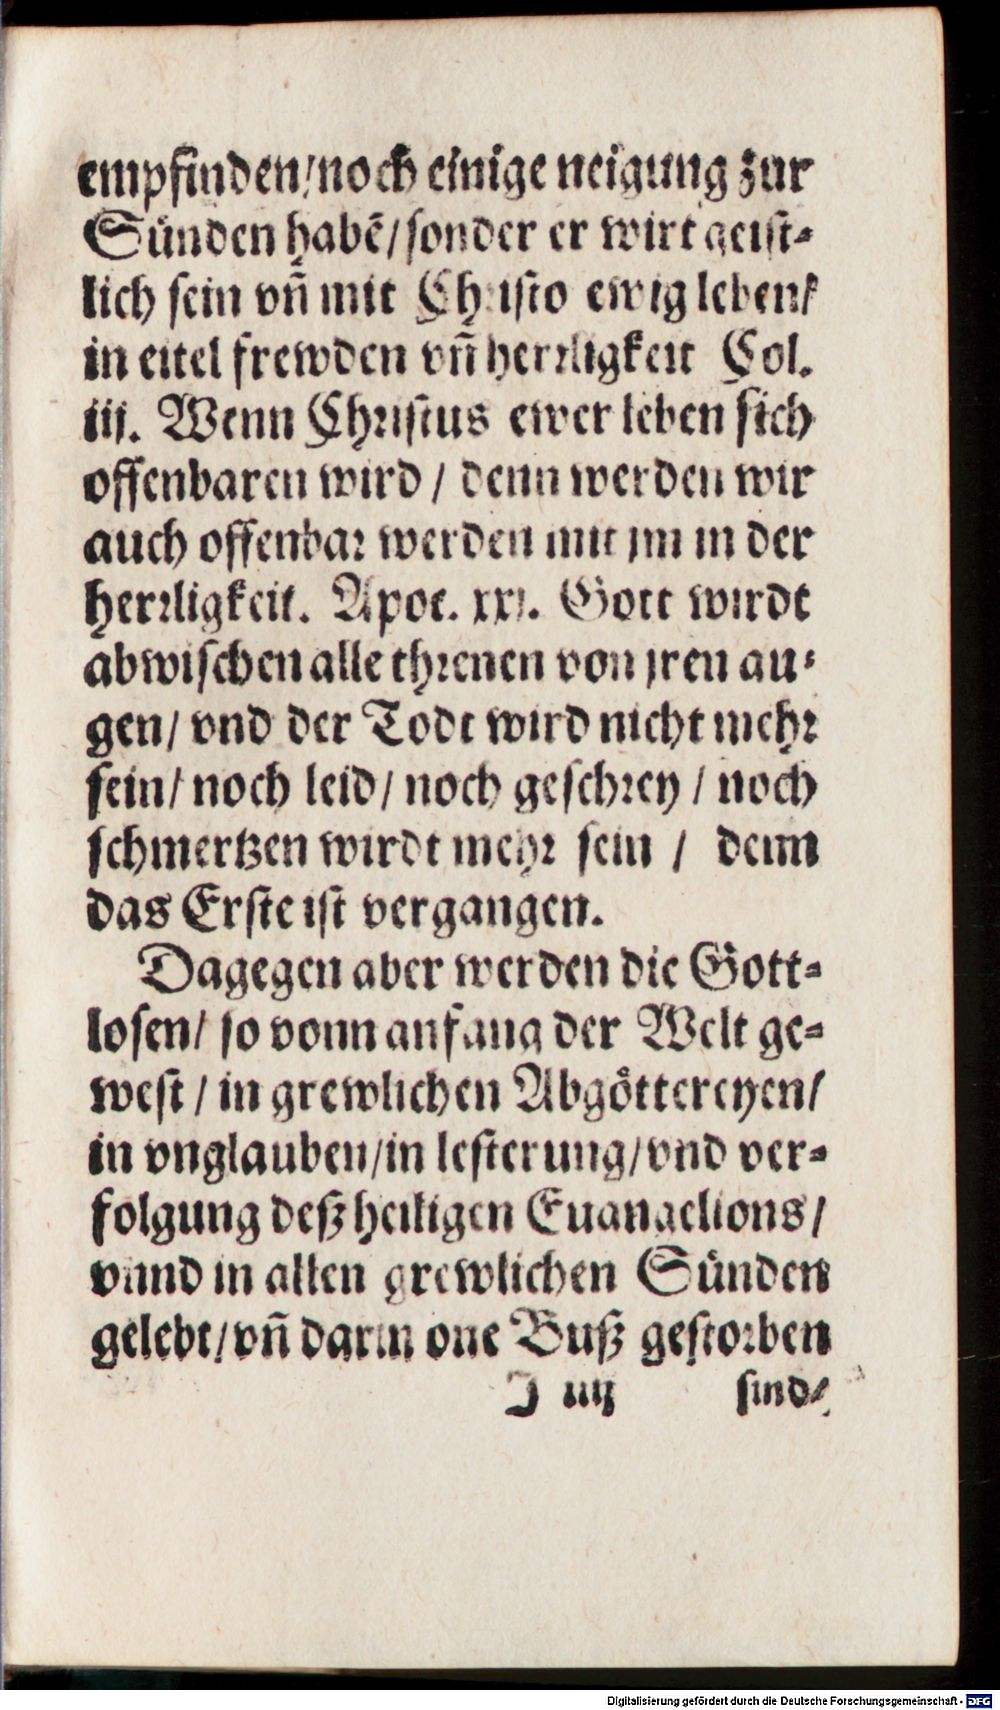 empfinden/noch einige neigung zur
Sünden habẽ/sonder er wirt geist-
lich sein vñ mit Christo ewig leben/
in eitel frewden vñ herrligkeit Col.
iij. Wenn Christus ewer leben sich
offenbaren wird / denn werden wir
auch offenbar werden mit jm in der
herrligkeit. Apoc. xxj. Gott wirdt
abwischen alle threnen von jren au-
gen/ vnd der Todt wird nicht mehr
sein/ noch leid/ noch geschrey / noch
schmertzen wirdt mehr sein / denn
das Erste ist vergangen.
Dagegen aber werden die Gott-
losen/ so vonn anfang der Welt ge-
west / in grewlichen Abgöttereyen/
in vnglauben/in lesterung/vnd ver-
folgung deß heiligen Euangelions/
vnnd in allen grewlichen Sünden
gelebt/vñ darin one Buß gestorben
J iiij sind/
Digitalisierung gefördert durch die Deutsche Forschungsgemeinschaft - DFG